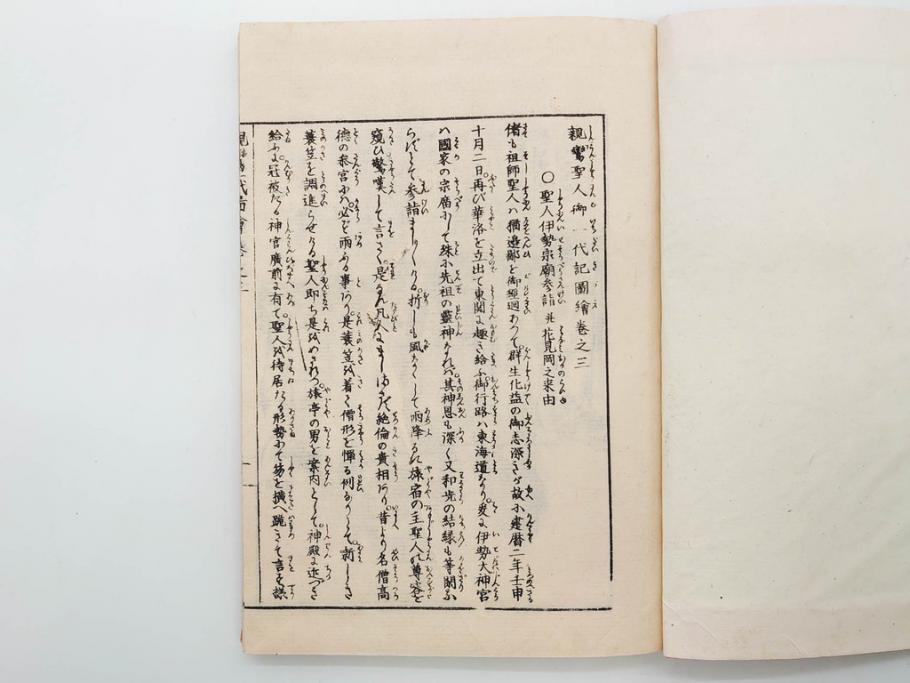 親鸞聖人御一代記圖繪巻之三
○聖人伊勢宗廟参詣并花見岡之来由
偖も祖師聖人ハ猶邉鄙を御經廻あつて群生化益の御志深きが故に建暦二年壬申
十月二日再び華洛を立出て東関に趣き給ふ御行路ハ東海道なり爰に伊勢大神宮
ハ國家の宗廟にして殊に先祖の靈神なれバ其神恩も深く又和光の結縁も等閑な
らずとて参詣ましましける折しも風あらくして雨降るれ旅宿の主聖人の尊容を
窺ひ驚嘆して言さく是なん凡人にましまさず絶倫の貴相あり昔より名僧高
德の参宮にハ必ず雨ふる事あり是蓑笠を着て僧形を憚る例なりとて新しき
蓑笠を調進らせける聖人即ち是をめされつ旅亭の男を案内として神殿に近づき
給ふに冠被たる神官廣前に有て聖人を待居たる形勢にて笏を擴へ跪きて言を謹